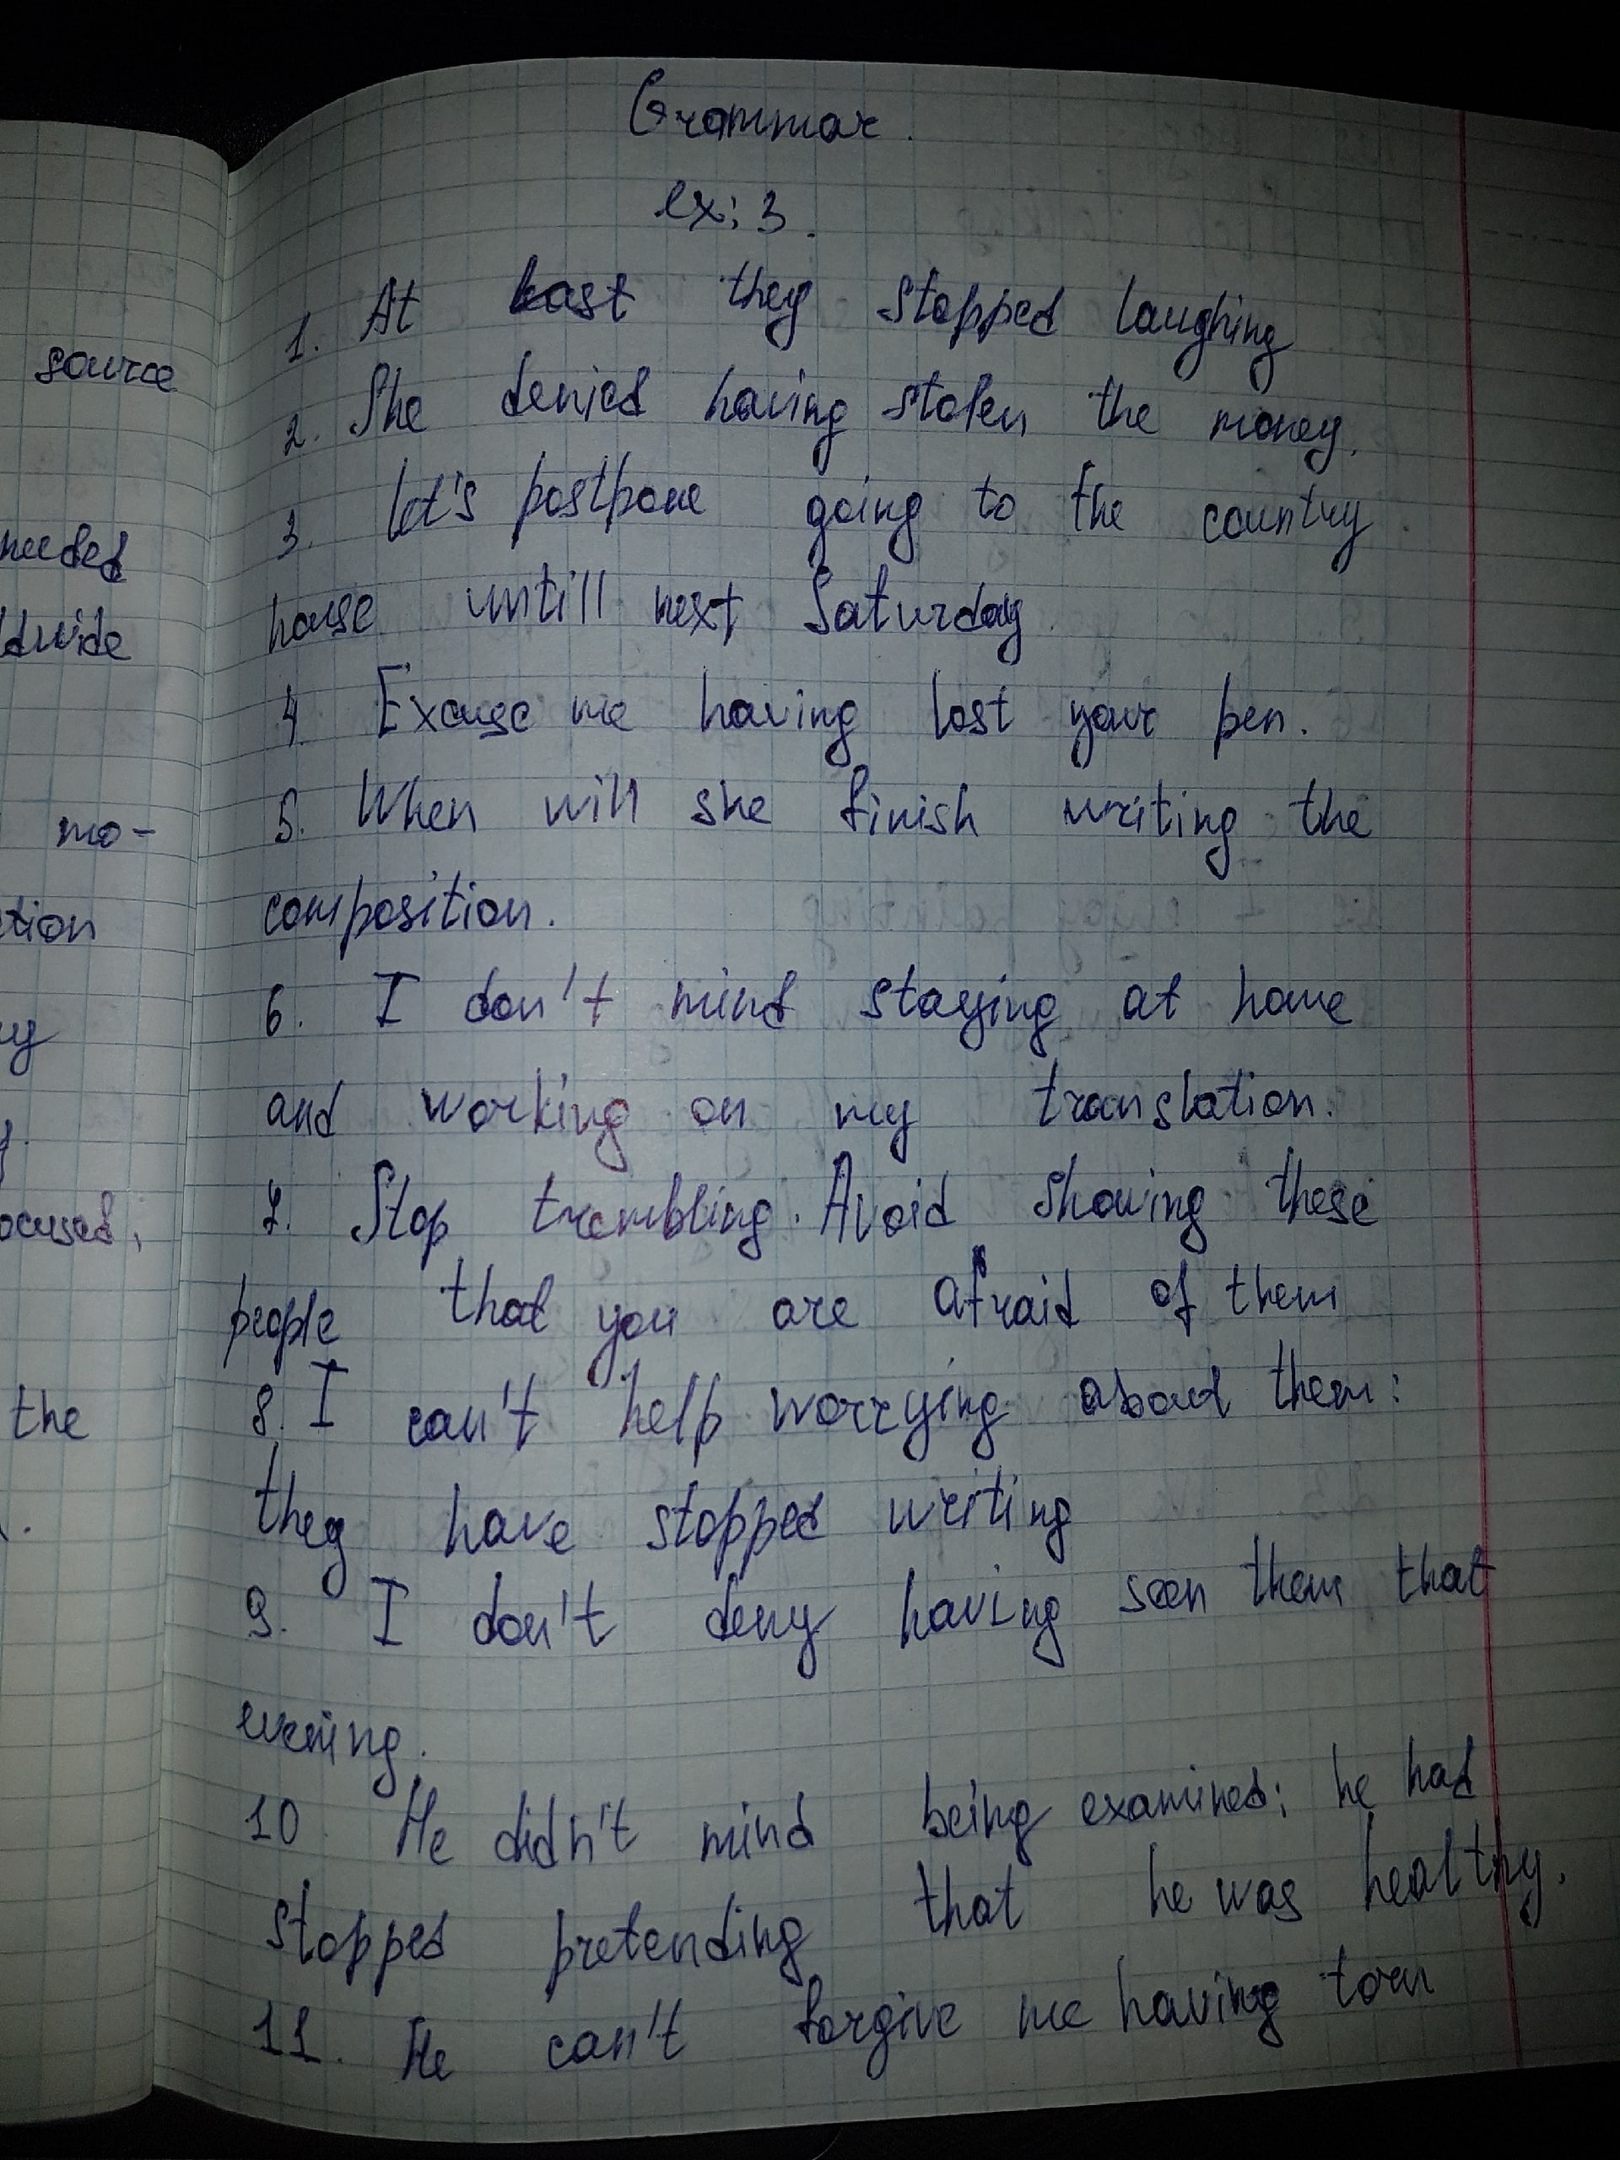 source
needed
dwide
mo-
tion
y
ocused,
the
Grammar.
ex: 3.
1. At last they stopped laughing
2. She denied having stolen the money.
3. Let's postpone going to the country
house untill next Saturday
4. Excuse me having lost your pen.
5. When will she finish writing the
composition.
6. I don't mind staying at home
and working on my translation.
7. Stop trembling. Avoid showing these
people that you are afraid of them
8. I can't help worrying about them:
they have stopped writing
9. I don't deny having seen them that
evening.
10 He didn't mind being examined; he had
stopped pretending that he was healthy.
11. He can't forgive me having torn